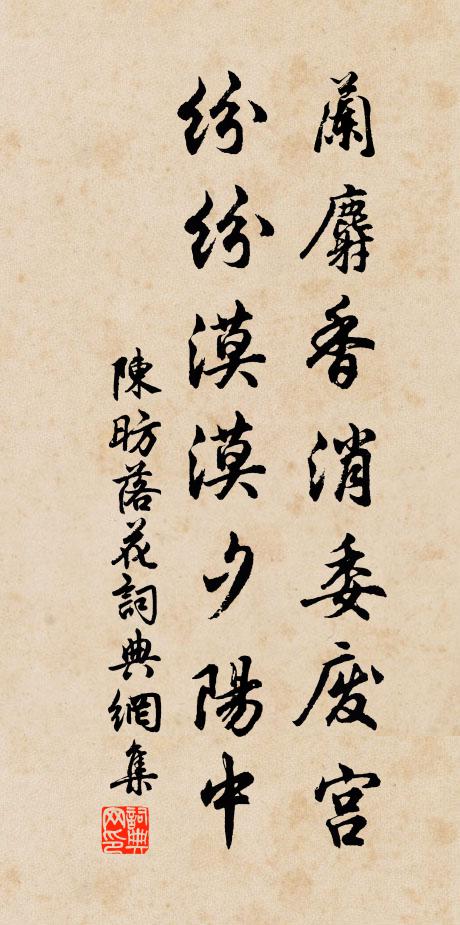 蘭麝香消委废宫
纷纷漠漠夕陽中
陳昉落花詞典網集
詞典网印